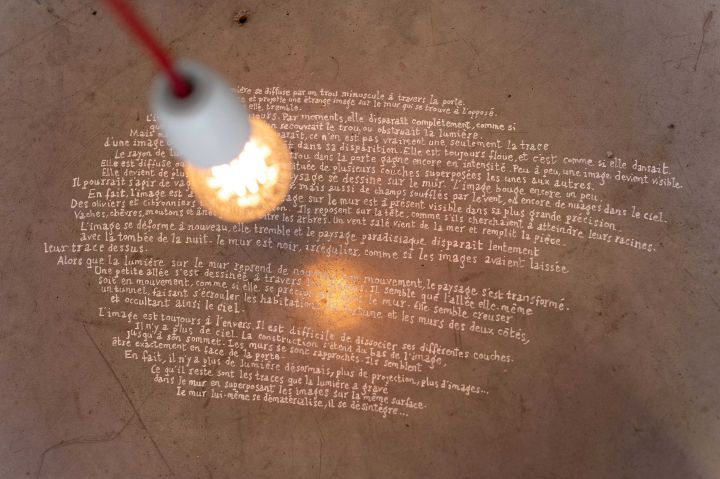 mière se diffuse par un trou minuscule à travers la porte.
et projette une étrange image sur le mur qui se trouve à l'opposé.
elle tremble.
L'i jours. Par moments, elle disparaît complètement, comme si
qu recouvrait le trou, ou obstruait la lumière.
Mais araît, ce n'en est pas vraiment une, seulement la trace
d'une image dans sa disparition. Elle est toujours floue, et c'est comme si elle dansait.
Le rayon de trou dans la porte gagne encore en intensité. Peu à peu, une image devient visible.
Elle est diffuse tituée de plusieurs couches superposées les unes aux autres.
Elle devient de plu aysage se dessine sur le mur. L'image bouge encore un peu.
Il pourrait s'agir de va mais aussi de champs soufflés par le vent, ou encore de nuages dans le ciel.
En fait, l'image est image sur le mur est à présent visible dans sa plus grande précision.
Des oliviers et citronniers Ils reposent sur la tête, comme s'ils cherchaient à atteindre leurs racines.
Vaches, chèvres, moutons et entre les arbres. Un vent salé vient de la mer et remplit la pièce.
L'image se déforme à nouveau, elle tremble et le paysage paradisiaque disparaît lentement
avec la tombée de la nuit. Le mur est noir, irrégulier, comme si les images avaient laissée
leur trace dessus.
Alors que la lumière sur le mur reprend de nouveau mouvement, le paysage s'est transformé.
Une petite allée s'est dessinée à travers les Il semble que l'allée elle-même
soit en mouvement, comme si elle se précip le mur. Elle semble creuser
un tunnel, faisant s'écrouler les habitations une et les murs des deux côtés,
et occultant ainsi le ciel.
L'image est toujours à l'envers. Il est difficile de dissocier ses différentes couches.
Il n'y a plus de ciel. La construction s'étend du bas de l'image,
jusqu'à son sommet. Les murs se sont rapprochés. Ils semblent
être exactement en face de la porte.
En fait, il n'y a plus de lumière désormais, plus de projection, plus d'images...
Ce qu'il reste sont les traces que la lumière a gravé
dans le mur en superposant les images sur la même surface.
Le mur lui-même se dématérialise, il se désintègre...